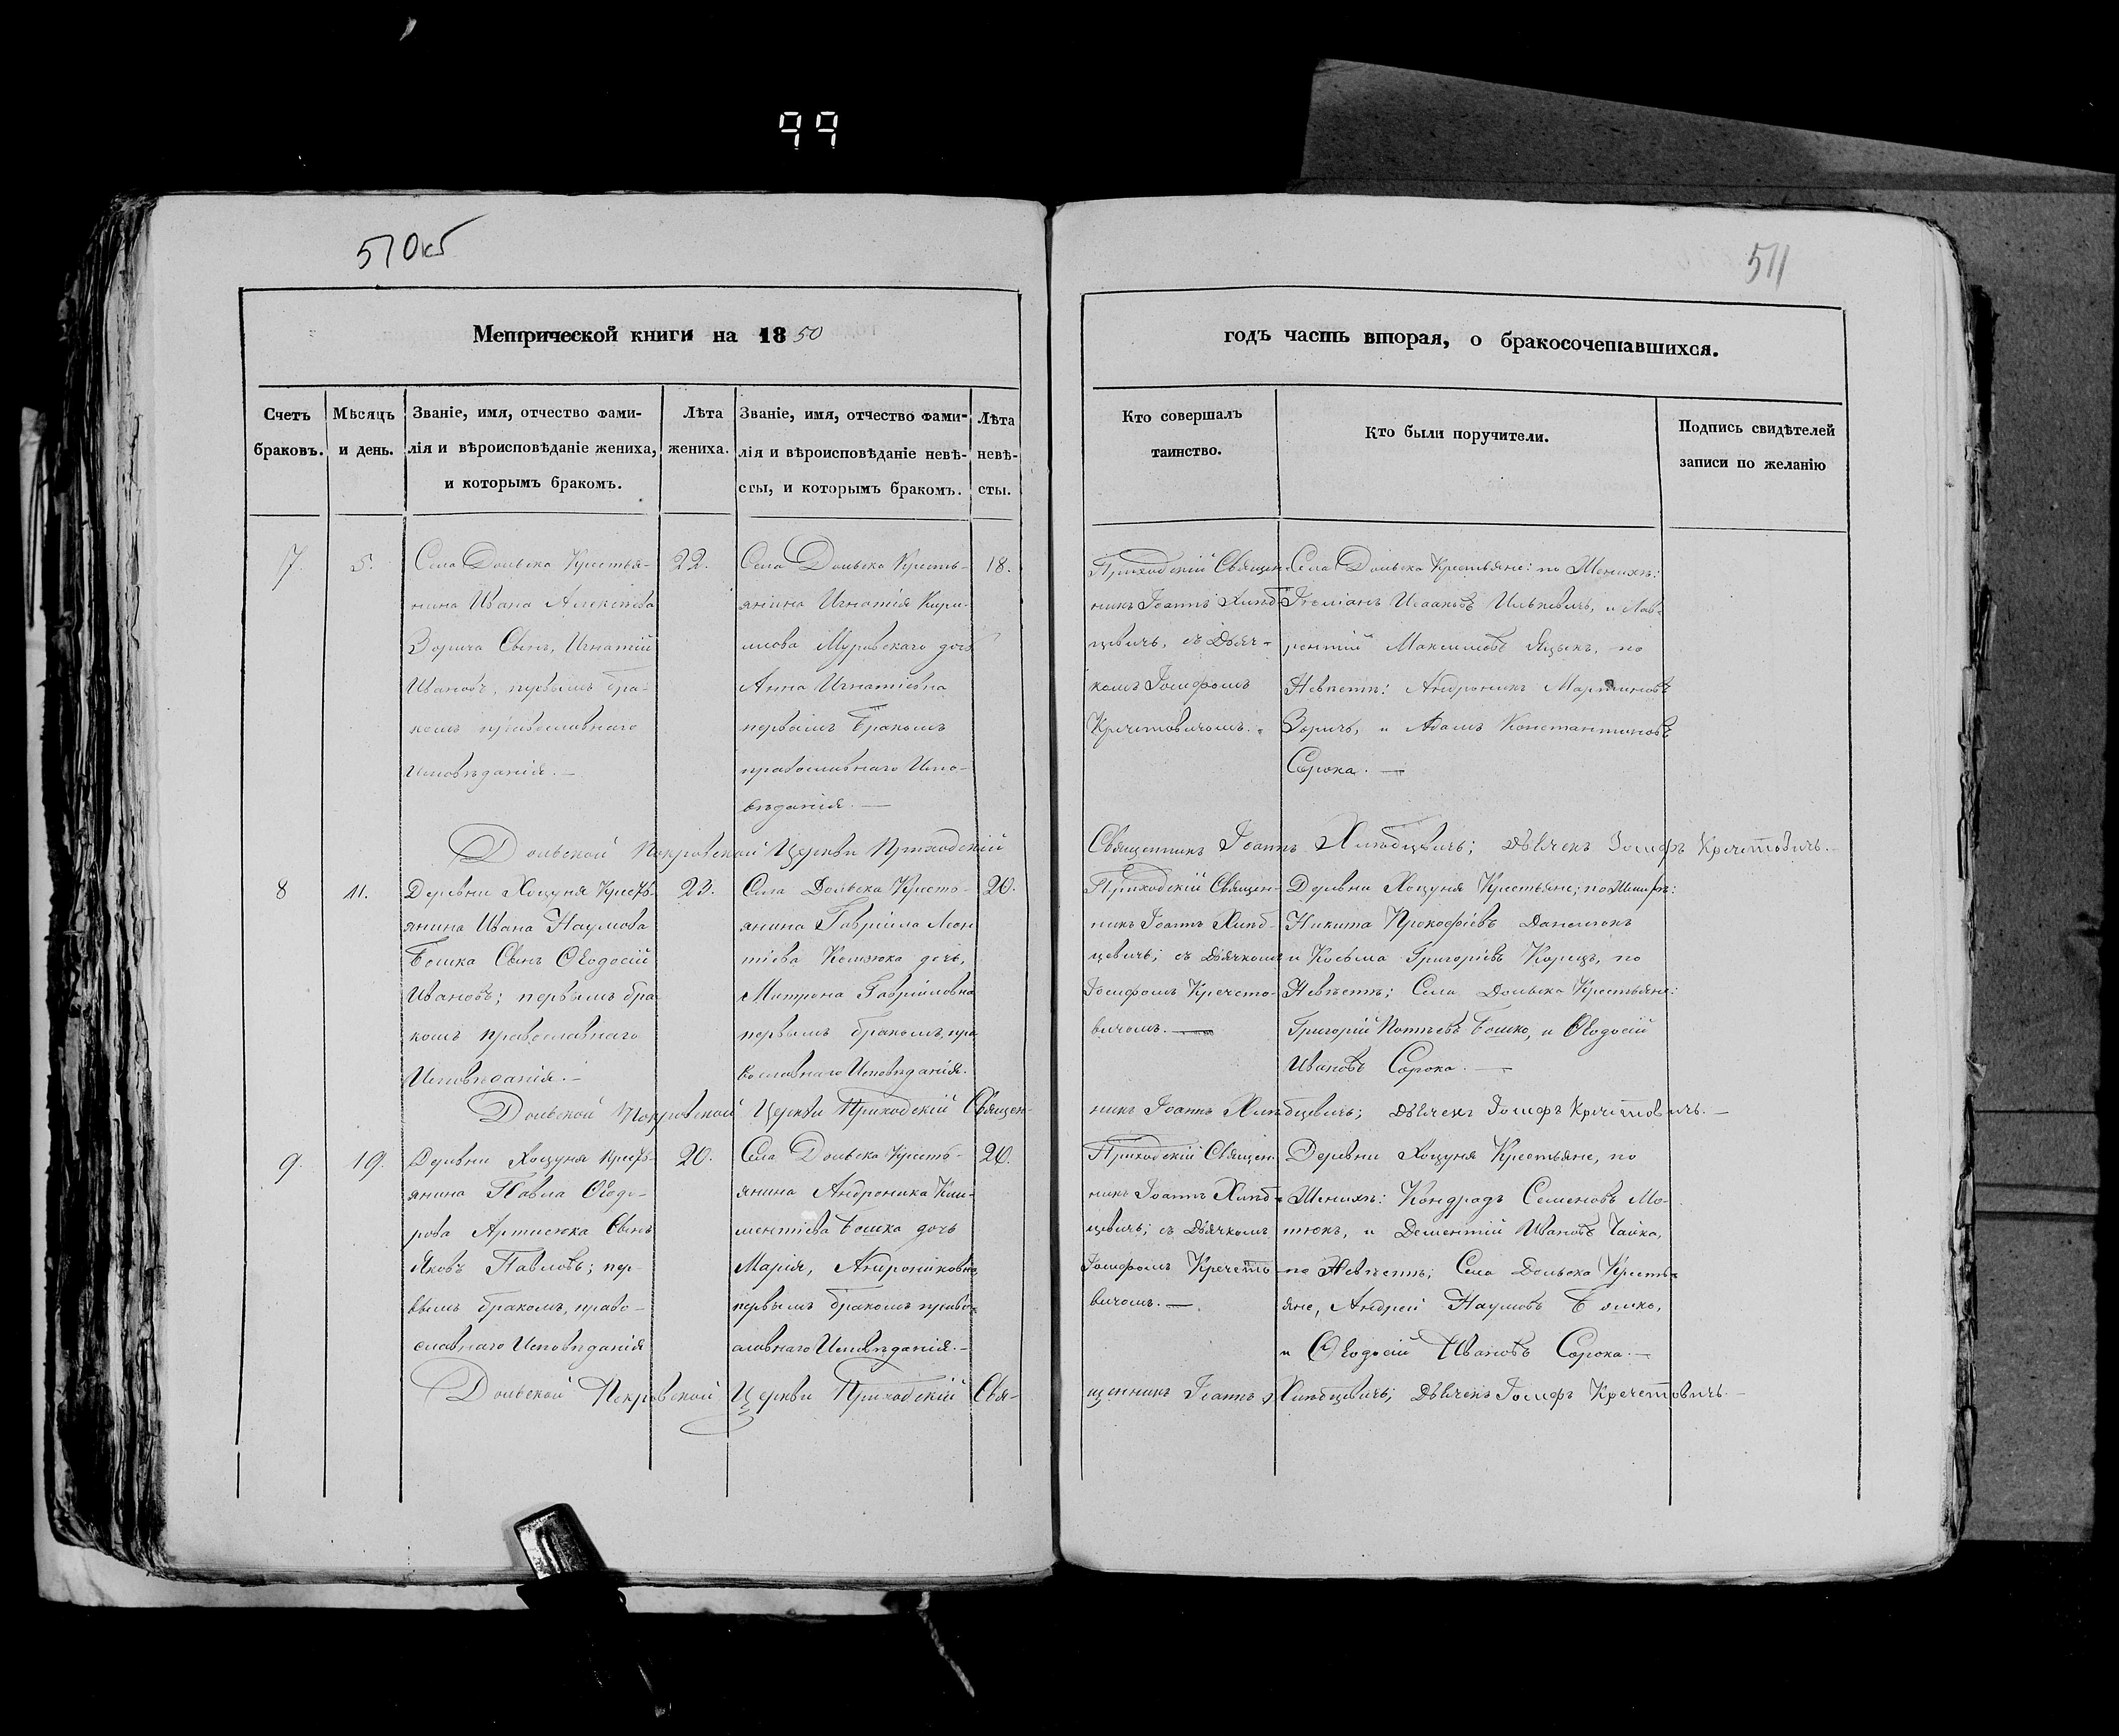 99
510об
511
Метрической книги на 1850
годъ часть вторая, о бракосочетавшихся.
Счетъ
браковъ.
Мѣсяцъ
и день.
Званіе, имя, отчество фами-
лія и вѣроисповѣданіе жениха,
и которымъ бракомъ.
Лѣта
жениха.
Званіе, имя, отчество фами-
лія и вѣроисповѣданіе невѣ-
сты, и которымъ бракомъ.
Лѣта
невѣ-
сты.
Кто совершалъ
таинство.
Кто были поручители.
Подпись свидѣтелей
записи по желанію
7.
5.
Села Дольска Крестья-
нина Ивана Алексѣева
Зорича Сынъ, Игнатій
Ивановъ, первымъ бра-
комъ православнаго
Исповѣданія. —
22.
Села Дольска Кресть-
янина Игнатія Кири-
лова Муравскаго дочь
Анна Игнатіевна
первымъ бракомъ
православнаго Испо-
вѣданія. —
18.
Приходскій Священ-
никъ Іоаннъ Хлѣб-
цевичъ, съ Дьяч-
комъ Іосифомъ
Кречетовичомъ.
Села Дольска Крестьяне: по Женихѣ:
Исааковъ Илькевичъ, и Лав-
рентій Максимовъ Яцыкъ, по
Невѣстѣ: Андроникъ Мартиновъ
Зоричъ, и Адамъ Константиновъ
Сорока. —
Дольской Покровской Церкви Приходскій
Священникъ Іоаннъ Хлѣбцевичъ; Дьячекъ Іосифъ Кречетовичъ. —
8
11.
Деревни Хоцуня Кресть-
янина Ивана Наумова
Бошка Сынъ Ѳеодосій
Ивановъ; первымъ бра-
комъ православнаго
Исповѣданія. —
23.
Села Дольска Кресть-
янина Гавріила Леон-
тіева дочь,
Матрона Гавріиловна
первымъ бракомъ, пра-
вославнаго Исповѣданія.
20.
Приходскій Священ-
никъ Іоаннъ Хлѣб-
цевичъ; съ Дьячкомъ
Іосифомъ Кречето-
вичомъ. —
Деревни Хоцуня Крестьяне; по Женихѣ:
Никита Прокофіевъ Данилюкъ
и Косьма Григоріевъ Корицъ, по
Невѣстѣ; Села Дольска Крестьяне:
Григорій Потѣевъ Бошко, и Ѳеодосій
Ивановъ Сорока. —
Дольской Покровской Церкви Приходскій Священ-
никъ Іоаннъ Хлѣбцевичъ; Дьячекъ Іосифъ Кречетовичъ. —
9.
19.
Деревни Хоцуня Кресть-
янина Павла Ѳеодо-
рова Артисюка Сынъ
Яковъ Павловъ; пер-
вымъ бракомъ, право-
славнаго Исповѣданія
20.
Села Дольска Кресть-
янина Андроника Кли-
ментіева Бошка дочь
Марія, Андрониковна,
первымъ бракомъ право-
славнаго Исповѣданія. —
20.
Приходскій Священ-
никъ Іоаннъ Хлѣб-
цевичъ; съ Дьячкомъ
Іосифомъ Кречето-
вичомъ. —
Деревни Хоцуня Крестьяне, по
Женихѣ: Кондрадъ Семеновъ Мо-
тюкъ, и Дементій Ивановъ Чайка,
по Невѣстѣ; Села Дольска Кресть-
яне, Андрей Наумовъ Бошко,
и Ѳеодосій Ивановъ Сорока. —
Дольской Покровской Церкви Приходскій Свя-
щенникъ Іоаннъ Хлѣбцевичъ; Дьячекъ Іосифъ Кречетовичъ. —